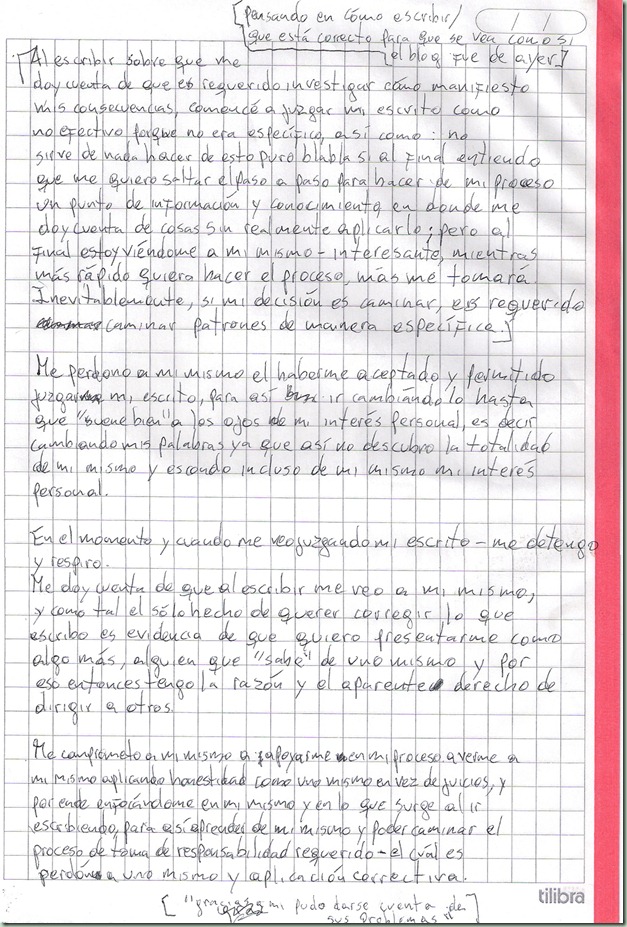 [pensando en cómo escribir/
que está correcto para que se vea como si
el blog fue de ayer]
Al escribir sobre que me
doy cuenta de que es requerido investigar cómo manifiesto
mis consecuencias, comencé a juzgar mi escrito como
no efectivo porque no era específico, así como: no
sirve de nada hacer de esto puro blabla si al final entiendo
que me quiero saltar el paso a paso para hacer de mi proceso
un punto de información y conocimiento en donde me
doy cuenta de cosas sin realmente aplicarlo; pero al
final estoy viéndome a mi mismo - interesante, mientras
más rápido quiera hacer el proceso, más me tomará.
Inevitablemente, si mi decisión es caminar, es requerido
caminar patrones de manera específica.]
Me perdono a mi mismo el haberme aceptado y permitido
juzgar mi escrito, para así ir cambiándolo hasta
que "suene bien" a los ojos de mi interés personal, es decir
cambiando mis palabras ya que así no descubro la totalidad
de mi mismo y escondo incluso de mi mismo mi interés
personal.
En el momento y cuando me veo juzgando mi escrito - me detengo
y respiro.
Me doy cuenta de que al escribir me veo a mi mismo,
y como tal el sólo hecho de querer corregir lo que
escribo es evidencia de que quiero presentarme como
algo más, alguien que "sabe" de uno mismo y por
eso entonces tengo la razón y el aparente derecho de
dirigir a otros.
Me comprometo a mi mismo a apoyarme en mi proceso a verme a
mi mismo aplicando honestidad como uno mismo en vez de juicios, y
por ende enfocándome en mi mismo y en lo que surge al ir
escribiendo, para así aprender de mi mismo y poder caminar el
proceso de toma de responsabilidad requerido - el cuál es
perdón a uno mismo y aplicación correctiva.
tilibra
["gracias a mi pudo darse cuenta de
sus problemas"]